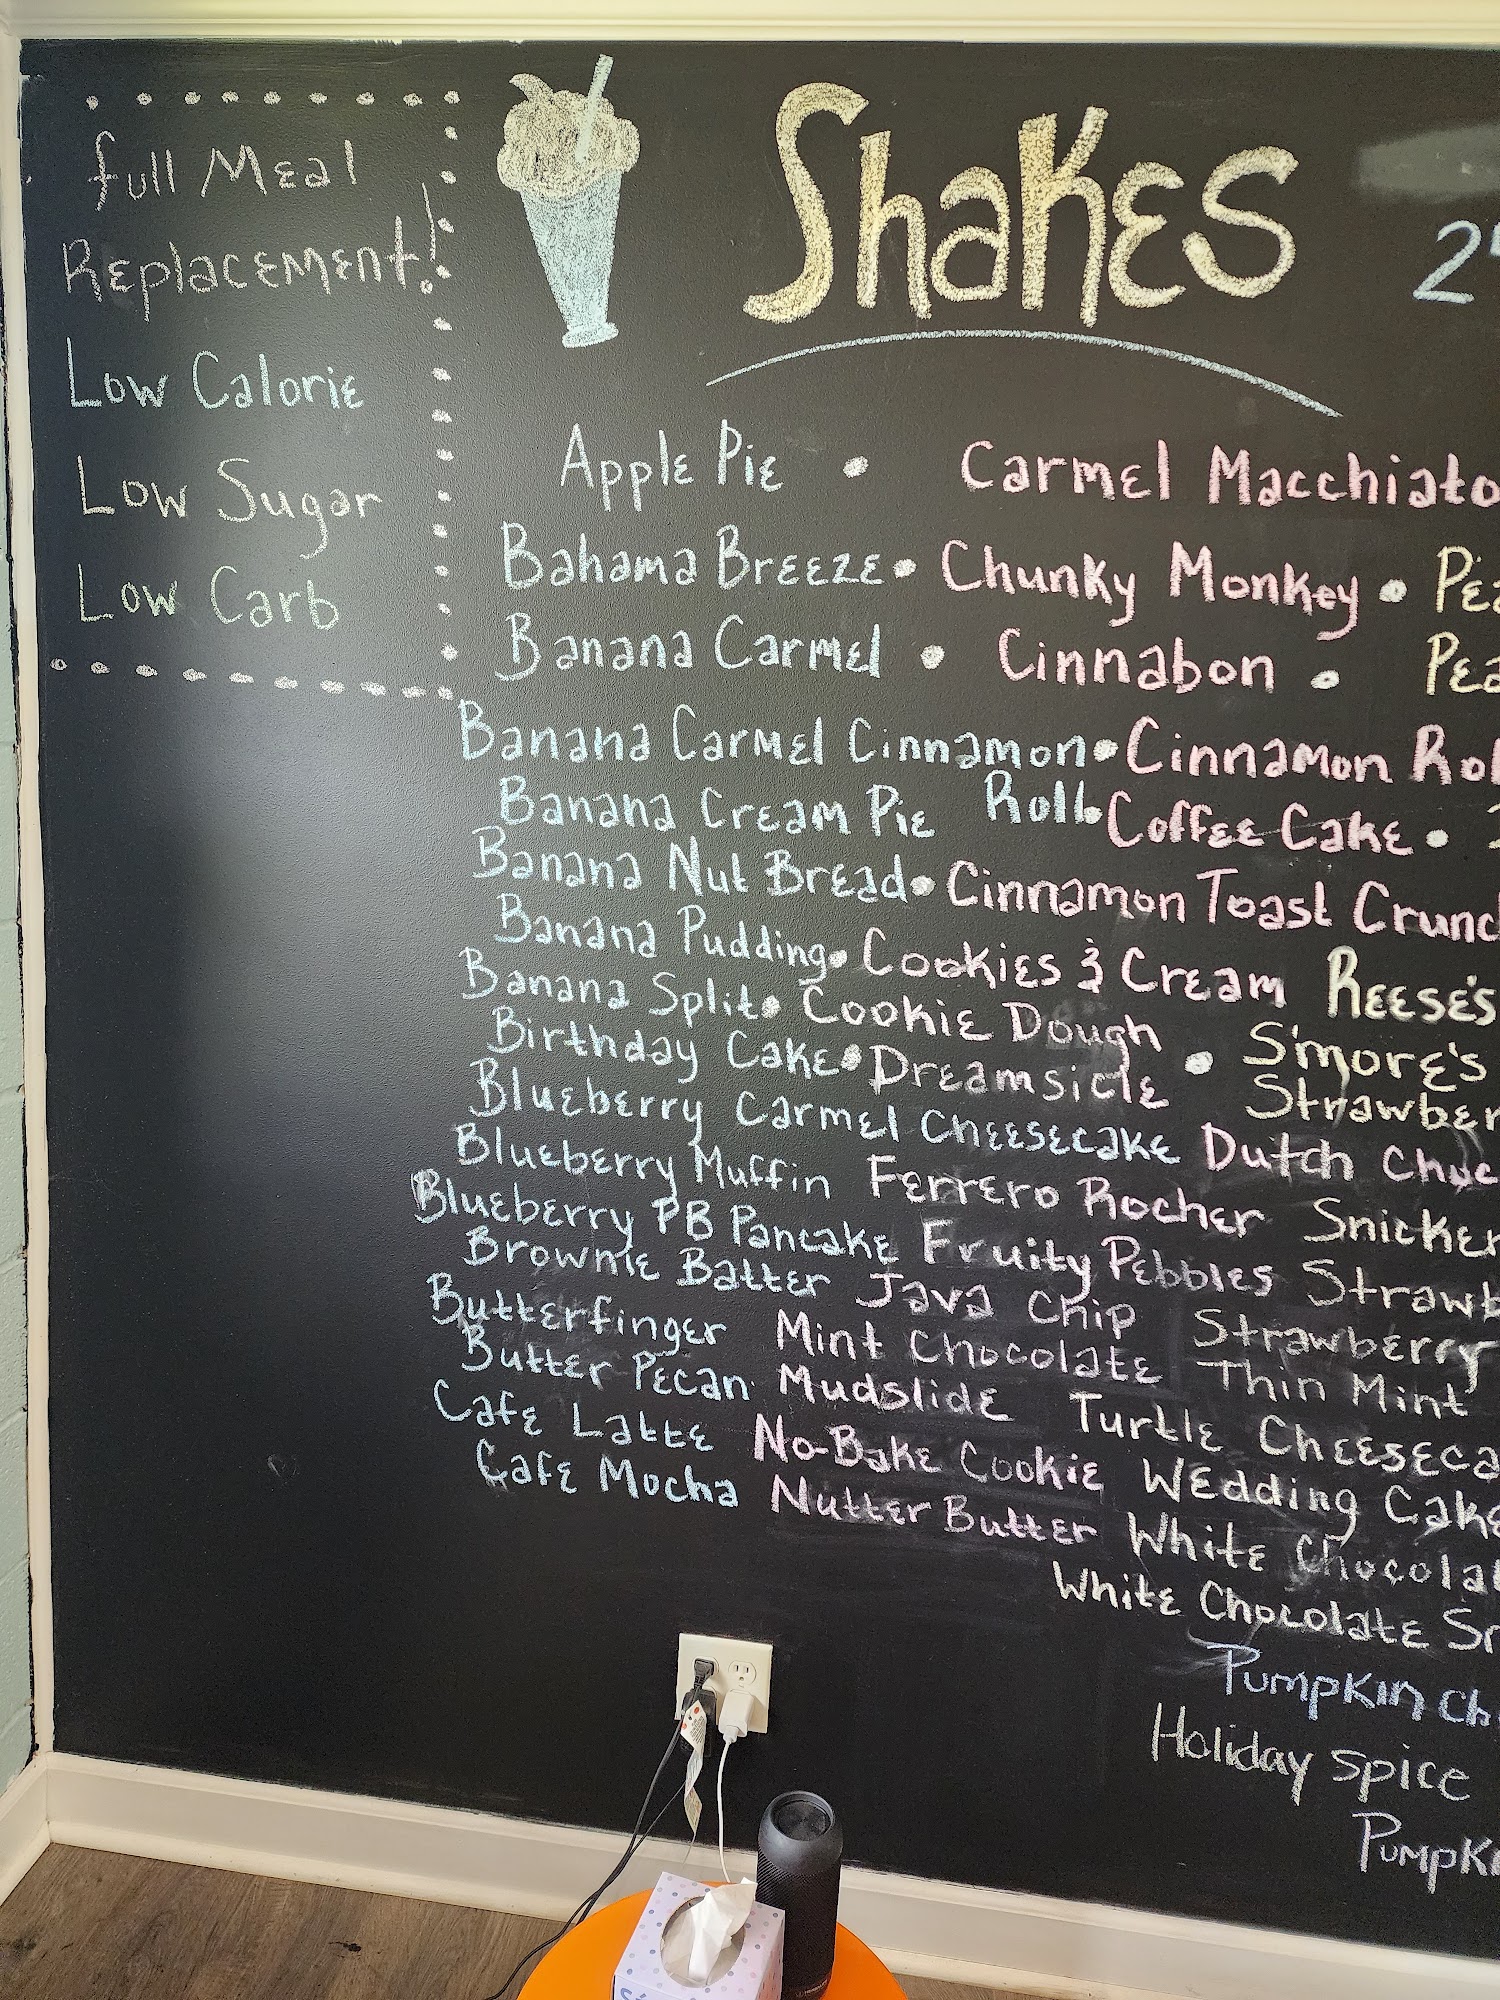 full Meal
Replacement!
Low Calorie
Low Sugar
Low Carb
Shakes
Apple Pie • Carmel Macchiato
Bahama Breeze • Chunky Monkey •
Banana Carmel • Cinnabon •
Banana Carmel Cinnamon Roll • Cinnamon
Banana Cream Pie • Coffee Cake •
Banana Nut Bread • Cinnamon Toast
Banana Pudding • Cookies & Cream Reese's
Banana Split • Cookie Dough • S'more's
Birthday Cake • Dreamsicle
Blueberry Carmel Cheesecake Dutch
Blueberry Muffin Ferrero Rocher
Blueberry PB Pancake Fruity Pebbles
Brownie Batter Java Chip Strawberry
Butterfinger Mint Chocolate Thin Mint
Butter Pecan Mudslide Turtle
Cafe Latte No-Bake Cookie Wedding Cake
Cafe Mocha Nutter Butter White
White Chocolate
Pumpkin
Holiday spice